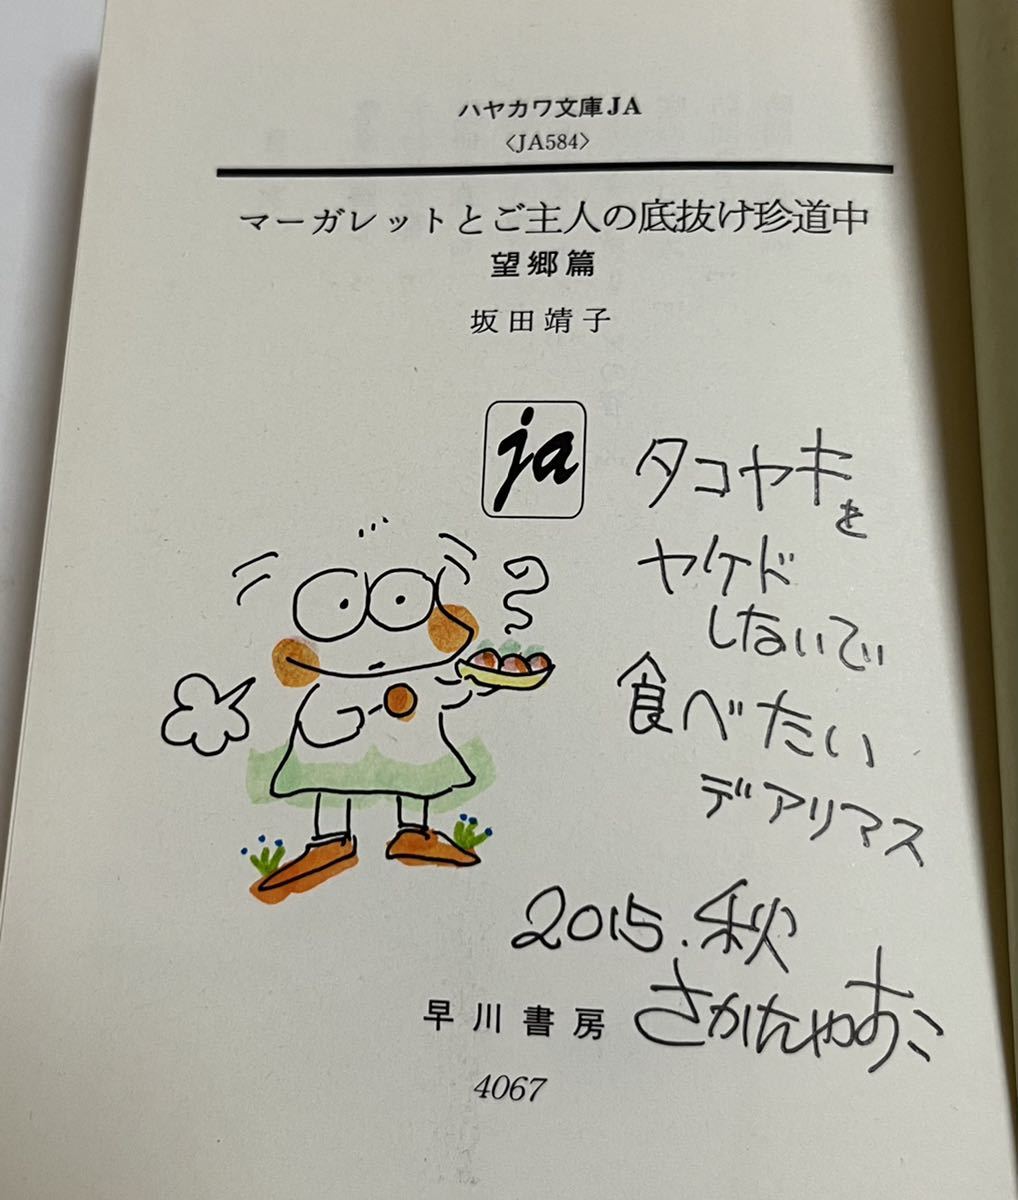 ハヤカワ文庫JA
〈JA584〉
マーガレットとご主人の底抜け珍道中
望郷篇
坂田靖子
ja
タコヤキを
ヤケド
しないで
食べたい
デアリマス
2015.秋
さかたやすこ
早川書房
4067